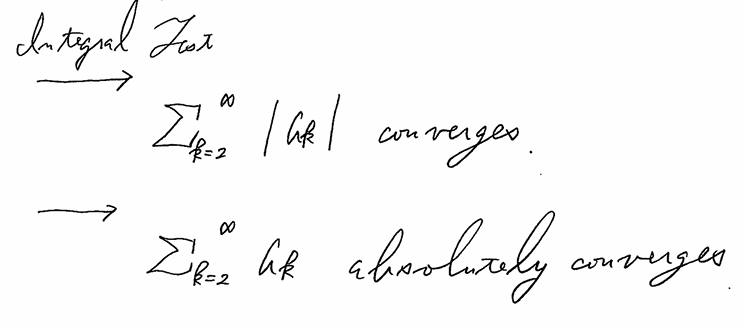 Integral Test
⟶ ∑_{k=2}^{∞} |a_k| converges.
⟶ ∑_{k=2}^{∞} a_k absolutely converges.